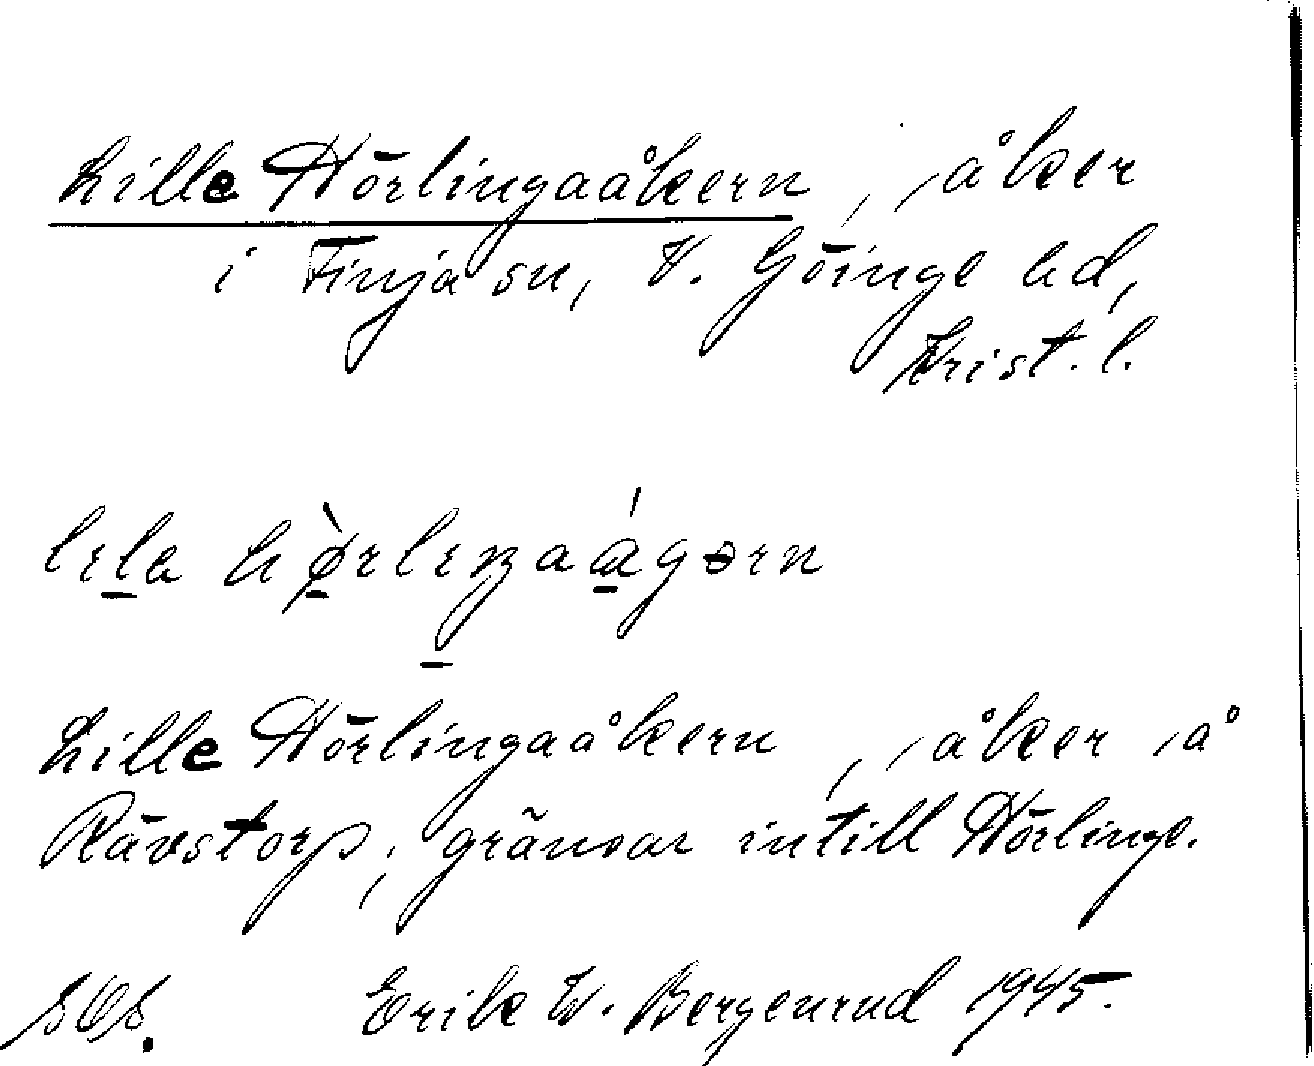 Lille Hörlingaåkern, åker
i Finja sn, V. Göinge hd,
Krist. l.
Lille Hörlingaåkern, åker å
Rävstorp; gränsar intill Hörlinge.
Erik W. Bergenrud 1945.